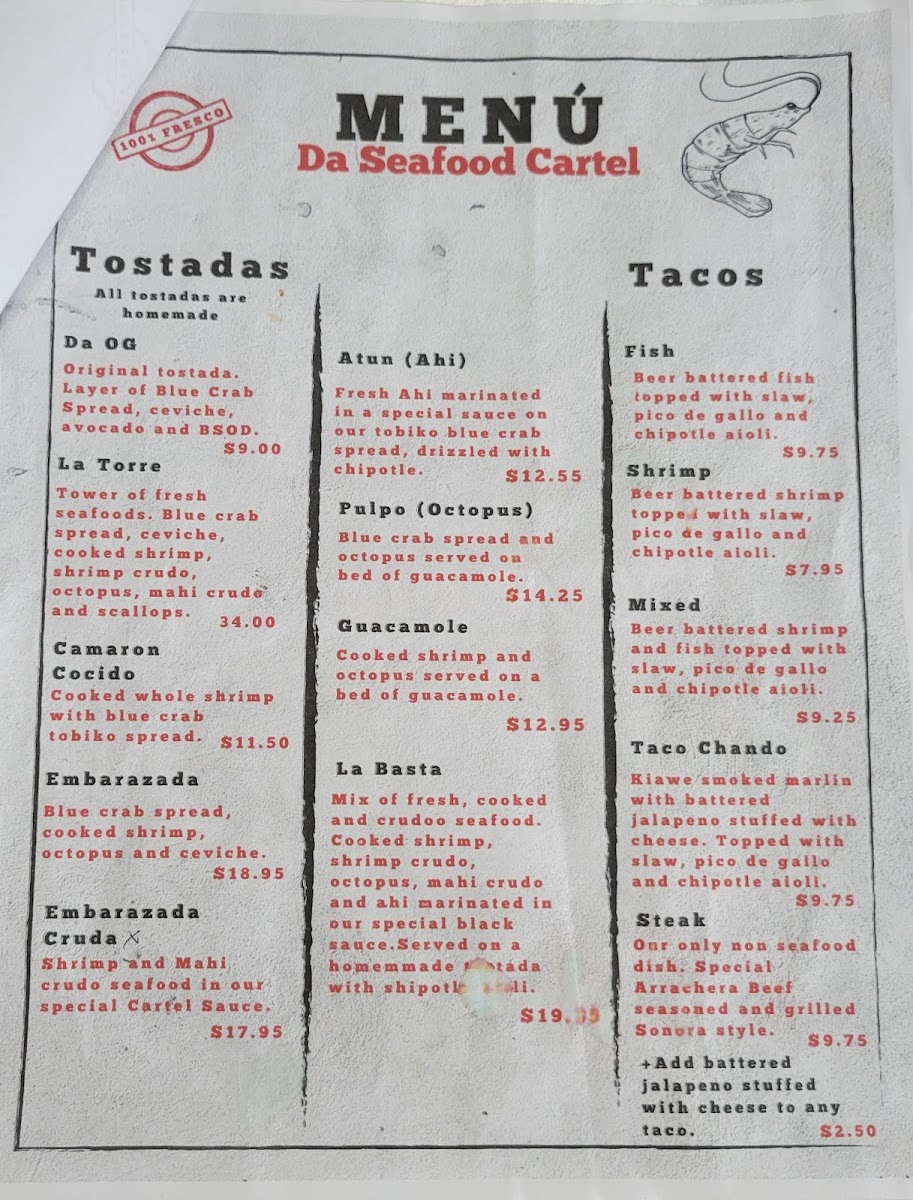 100% FRESCO
MENÚ
Da Seafood Cartel
Tostadas
All tostadas are
homemade
Da OG
Original tostada.
Layer of Blue Crab
Spread, ceviche,
avocado and BSOD.
$9.00
La Torre
Tower of fresh
seafoods. Blue crab
spread, ceviche,
cooked shrimp,
shrimp crudo,
octopus, mahi crudo
and scallops.
34.00
Camaron
Cocido
Cooked whole shrimp
with blue crab
tobiko spread.
$11.50
Embarazada
Blue crab spread,
cooked shrimp,
octopus and ceviche.
$18.95
Embarazada
Cruda X
Shrimp and Mahi
crudo seafood in our
special Cartel Sauce.
$17.95
Atun (Ahi)
Fresh Ahi marinated
in a special sauce on
our tobiko blue crab
spread, drizzled with
chipotle.
$12.55
Pulpo (Octopus)
Blue crab spread and
octopus served on
bed of guacamole.
$14.25
Guacamole
Cooked shrimp and
octopus served on a
bed of guacamole.
$12.95
La Basta
Mix of fresh, cooked
and crudoo seafood.
Cooked shrimp,
shrimp crudo,
octopus, mahi crudo
and ahi marinated in
our special black
sauce.Served on a
homemmade
with
Tacos
Fish
Beer battered fish
topped with slaw,
pico de gallo and
chipotle aioli.
$9.75
Shrimp
Beer battered shrimp
topped with slaw,
pico de gallo and
chipotle aioli.
$7.95
Mixed
Beer battered shrimp
and fish topped with
slaw, pico de gallo
and chipotle aioli.
$9.25
Taco Chando
Kiawe smoked marlin
with battered
jalapeno stuffed with
cheese. Topped with
slaw, pico de gallo
and chipotle aioli.
$9.75
Steak
Our only non seafood
dish. Special
Arrachera Beef
seasoned and grilled
Sonora style.
$9.75
+Add battered
jalapeno stuffed
with cheese to any
taco.
$2.50